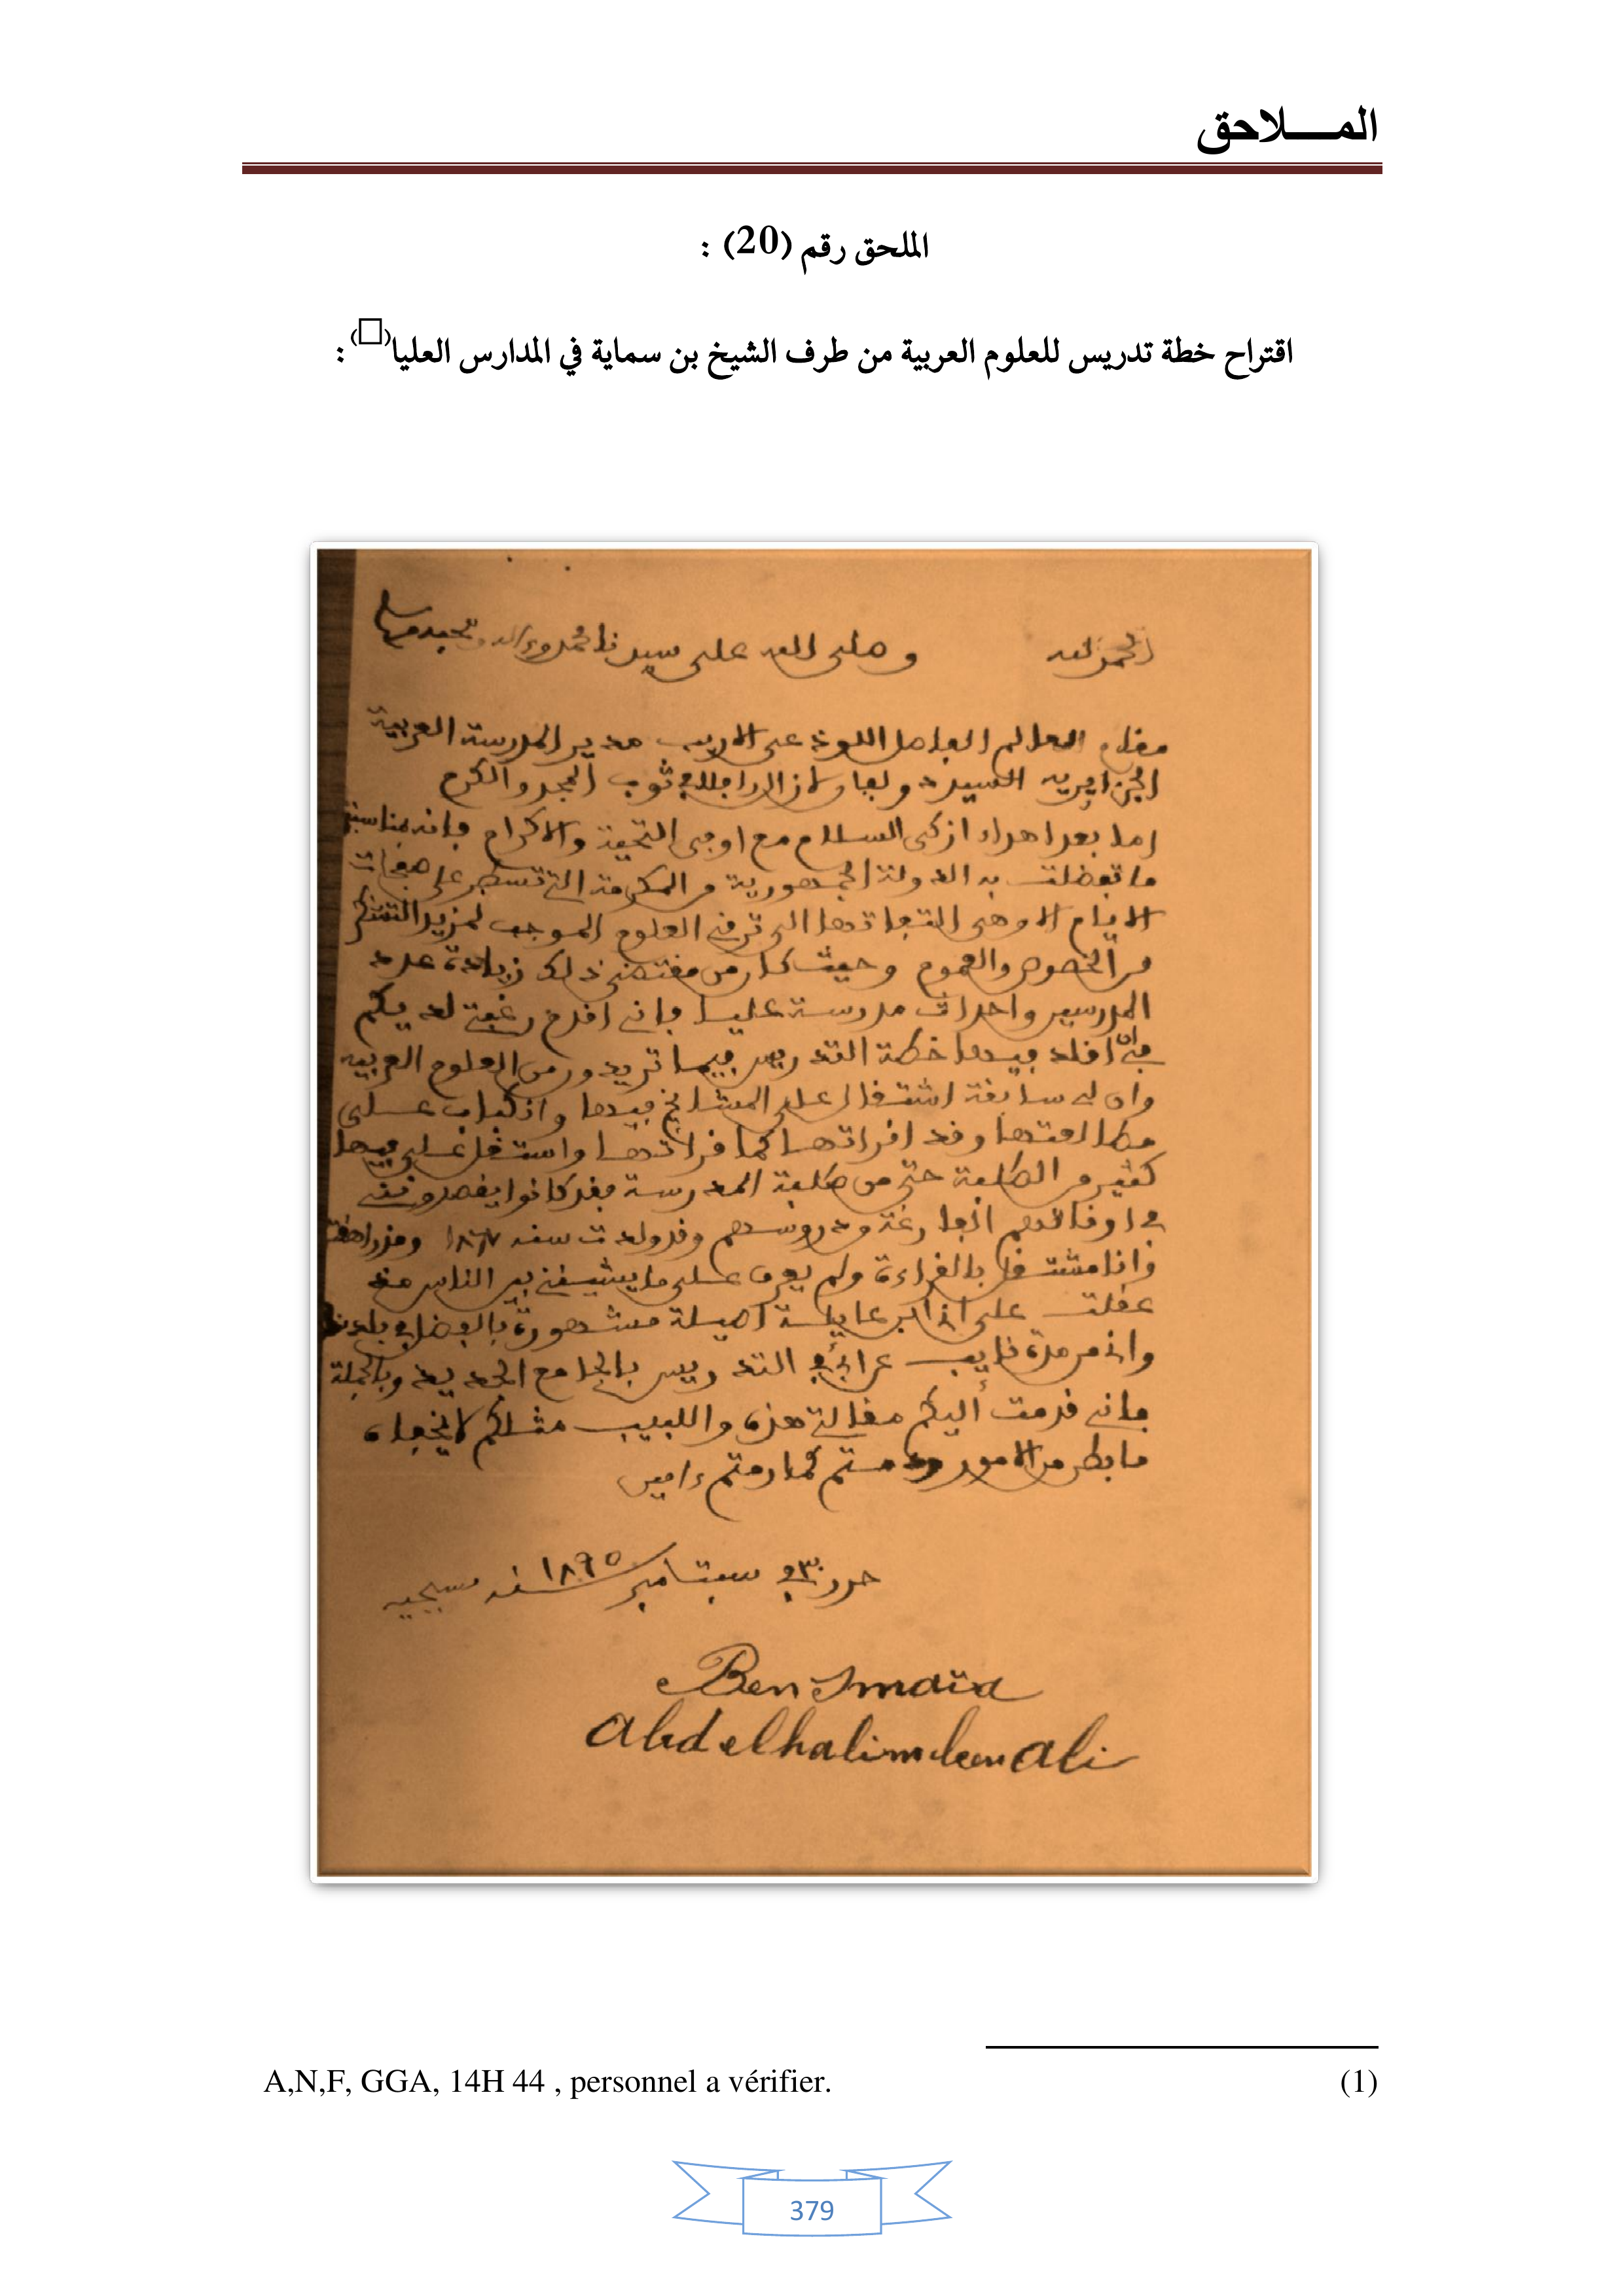 المـــــلاحق
الملحق رقم (20) :
اقتراح خطة تدريس للعلوم العربية من طرف الشيخ بن سماية في المدارس العليا(□) :
الحمد لله وصلى الله على سيدنا محمد وءاله وصحبه وسلم
مقام العالم الفاضل اللوذعي الاريب مدير المدرسة العربية
الجزايرية السيد لازال رافلا في ثوب المجد والكرم
اما بعد اهداء ازكى السلام مع اوفى التحية والاكرام فانه بمناسبة
ما تفضلت به الدولة الجمهورية من المكرمة التي تسطر على صفحات
الايام الا وهي التفاتها الى ترقي العلوم الموجب لمزيد التشكر
من الخصوص والعموم وحيث كان من مقتضى ذلك زيادة عدد
المدرسين واحداث مدرسة عليا فاني اقدم رغبتي لديكم
في ان اقلد فيها خطة التدريس فيما تريدون من العلوم العربية
وان لي سابقة اشتغال على المشايخ فيها وانكباب على
مطالعتها وقد اقراتها كما قراتها واشتغل علي فيها
كثير من الطلبة حتى من طلبة المدرسة فقد كانوا يقصدونني
في اوقاتهم الفارغة ودروسهم وقد ولدت سنة ١٨٦٧ ومنذ راهقت
وانا مشتغل بالقراءة ولم يعرف علي ما يشينني بين الناس منذ
عقلت على اني ابن عايلة اصيلة مشهورة بالفضل في بلدنا
واني من مدة نايب عن ابي في التدريس بالجامع الجديد وبالجملة
فاني قدمت اليكم مقالتي هذه واللبيب مثلكم لا يخفاه
ما بطن من الامور ودمتم كما رمتم ءامين
حرر في ٣٠ سبتامبر سنة ١٨٩٥ مسيحية
Ben Smaïa
Abdelhalim ben Ali
A,N,F, GGA, 14H 44 , personnel a vérifier. (1)
379